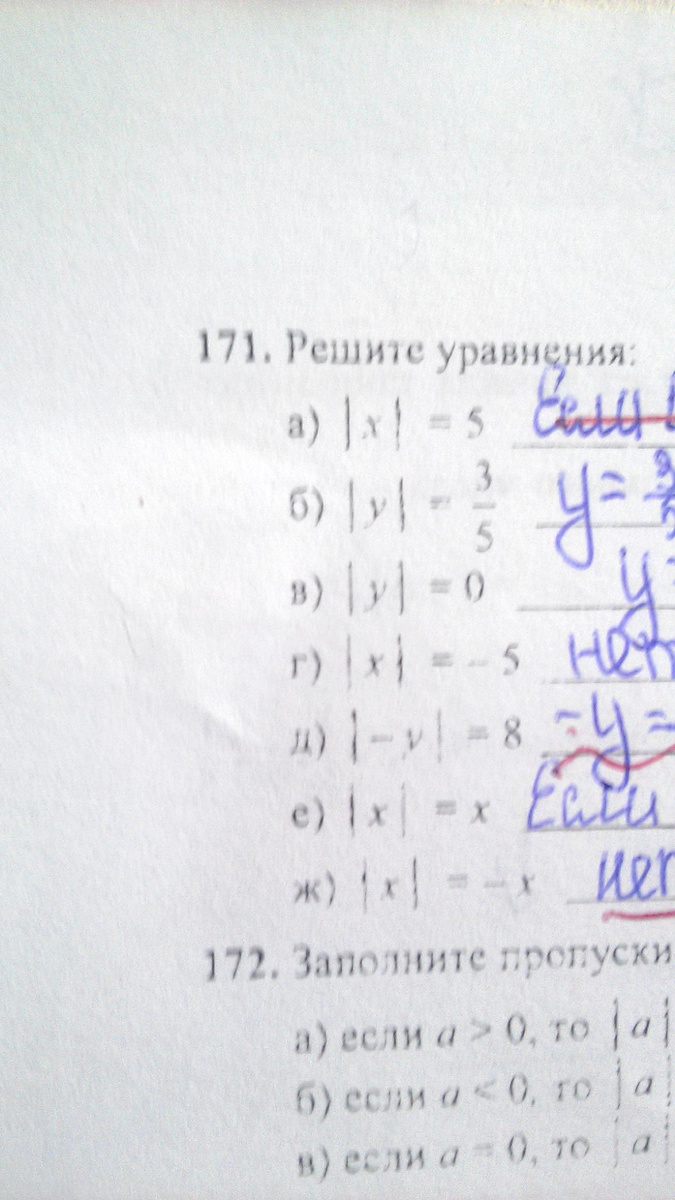 171. Решите уравнения:
а) |x| = 5 Если
б) |y| = 3/5 y = 3/5
в) |y| = 0 y =
г) |x| = - 5 нет
д) |- y| = 8 -y =
е) |x| = x Если
ж) |x| = - x нет
172. Заполните пропуски
а) если a > 0, то |a|
б) если a < 0, то |a|
в) если a = 0, то |a|